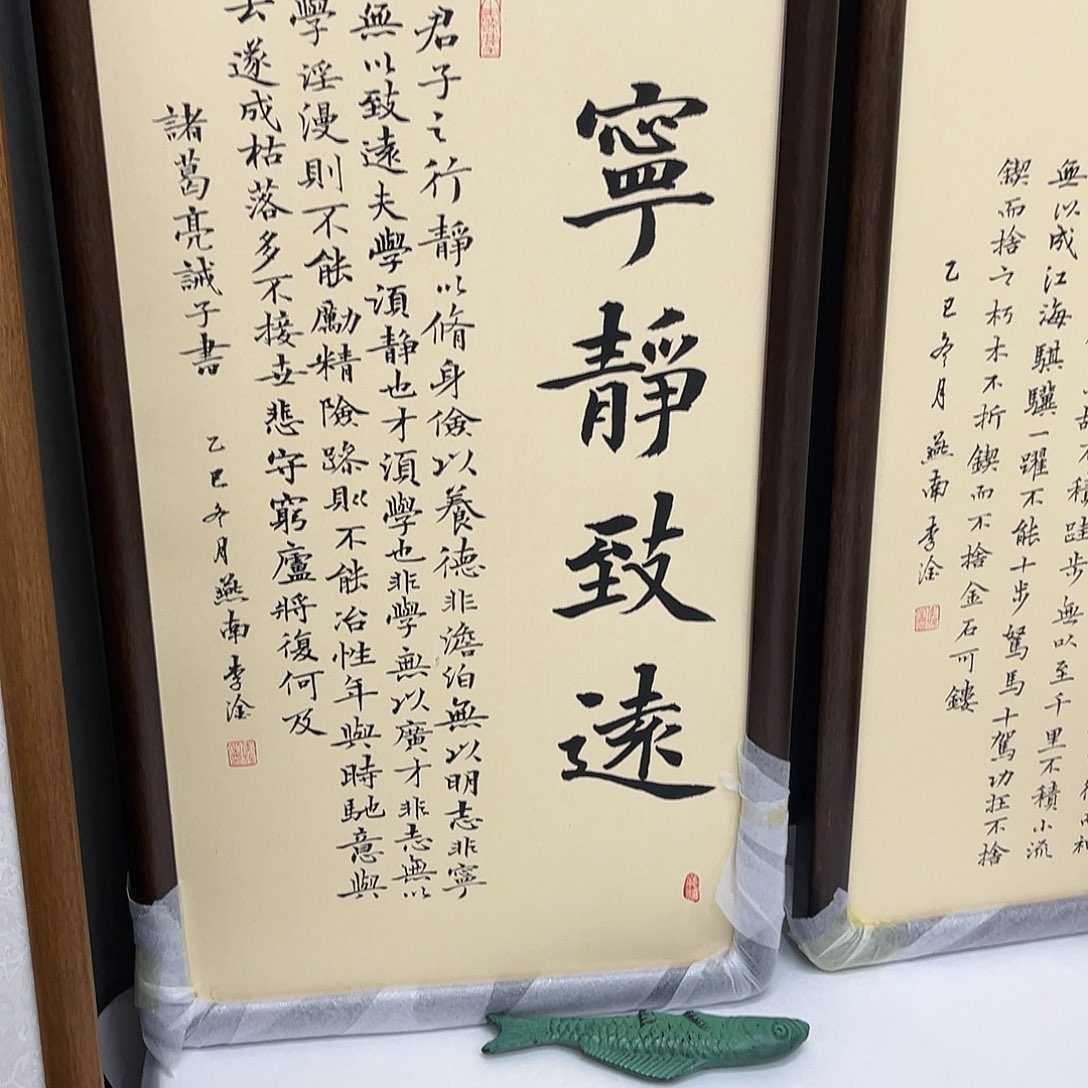 寧靜致遠
君子之行靜以脩身儉以養德非澹泊無以明志非寧
無以致遠夫學須靜也才須學也非學無以廣才非志無以
學淫漫則不能勵精險躁則不能冶性年與時馳意與
去遂成枯落多不接世悲守窮廬將復何及
諸葛亮誡子書
乙巳冬月燕南李淦
故不積跬步無以至千里不積小流
無以成江海騏驥一躍不能十步駑馬十駕功在不捨
鍥而捨之朽木不折鍥而不捨金石可鏤
乙巳冬月燕南李淦